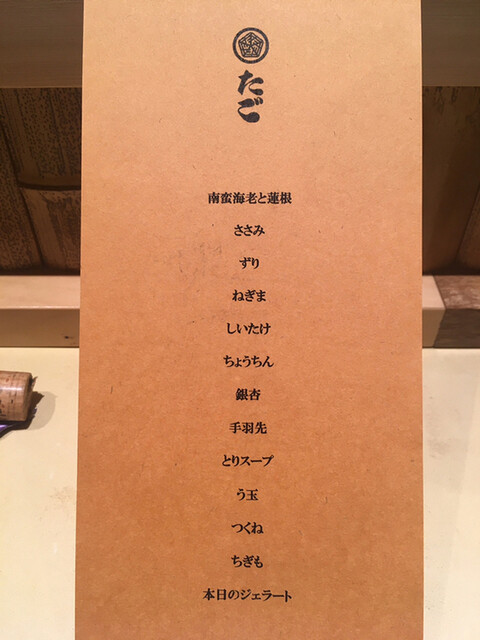 たご
南蛮海老と蓮根
ささみ
ずり
ねぎま
しいたけ
ちょうちん
銀杏
手羽先
とりスープ
う玉
つくね
ちぎも
本日のジェラート